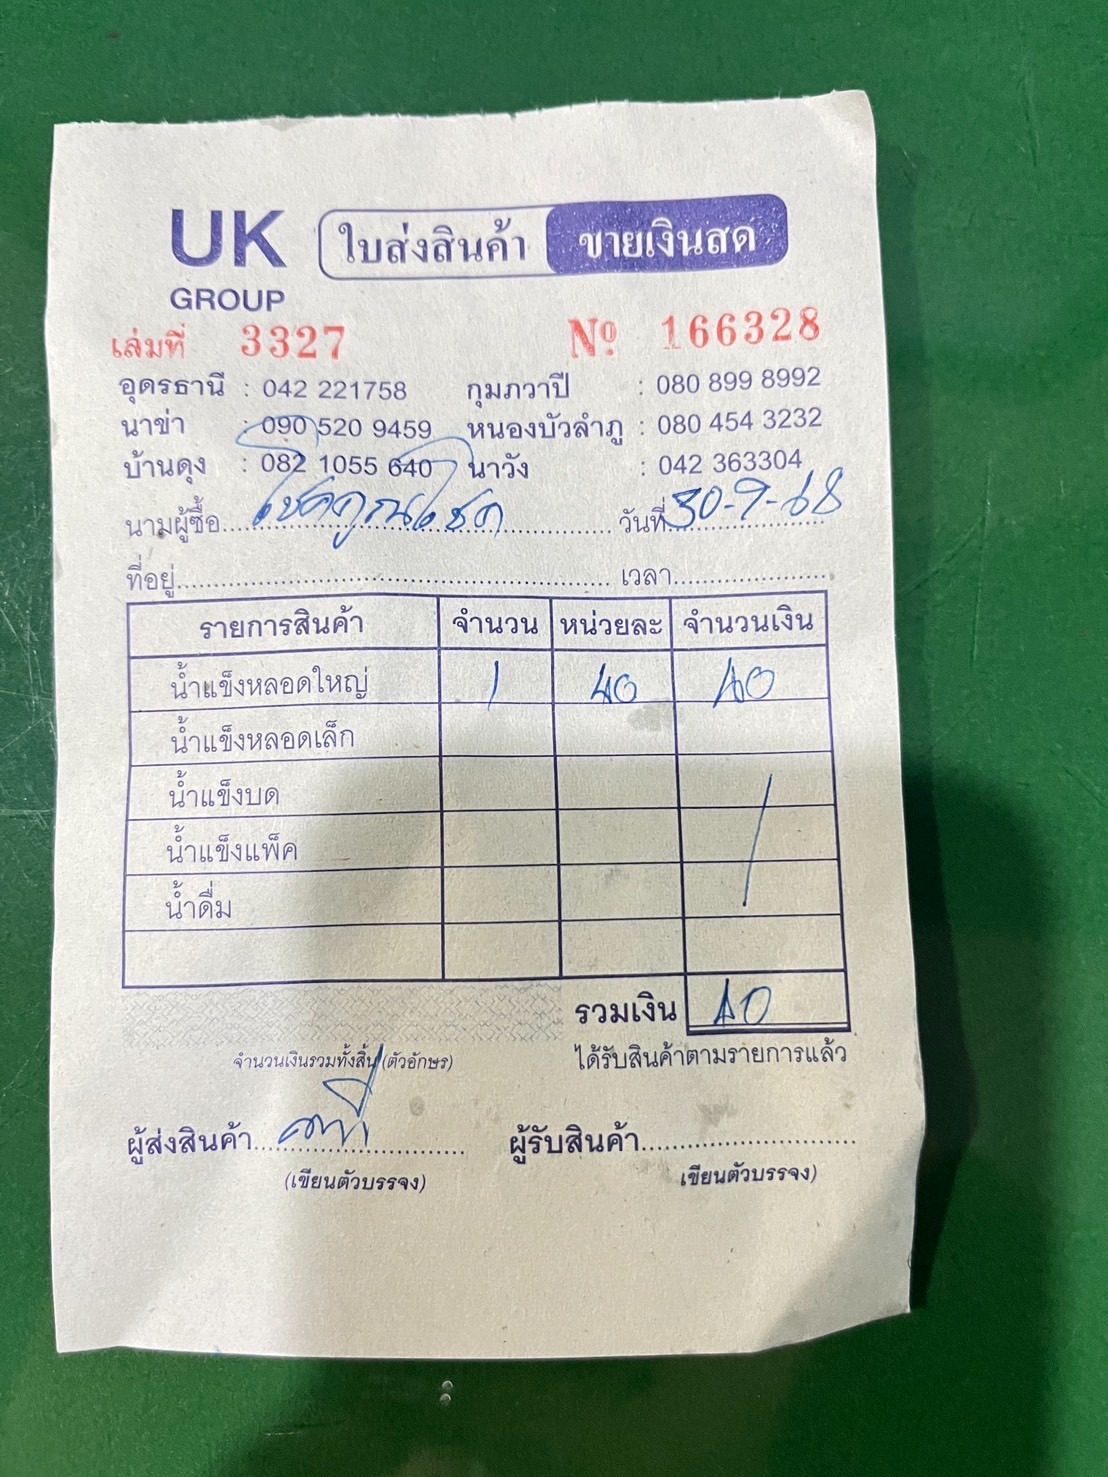 UK GROUP ใบส่งสินค้า ขายเงินสด
เล่มที่ 3327 Nº 166328
อุดรธานี : 042 221758 กุมภวาปี : 080 899 8992
นาข่า : 090 520 9459 หนองบัวลำภู : 080 454 3232
บ้านดุง : 082 1055 640 นาวัง : 042 363304
นามผู้ซื้อ โชคคูณโชค วันที่ 30-9-68
ที่อยู่ เวลา
รายการสินค้า จำนวน หน่วยละ จำนวนเงิน
น้ำแข็งหลอดใหญ่ 1 40 40
น้ำแข็งหลอดเล็ก
น้ำแข็งบด
น้ำแข็งแพ็ค
น้ำดื่ม
รวมเงิน 40
จำนวนเงินรวมทั้งสิ้น (ตัวอักษร) ได้รับสินค้าตามรายการแล้ว
ผู้ส่งสินค้า ผู้รับสินค้า
(เขียนตัวบรรจง) (เขียนตัวบรรจง)